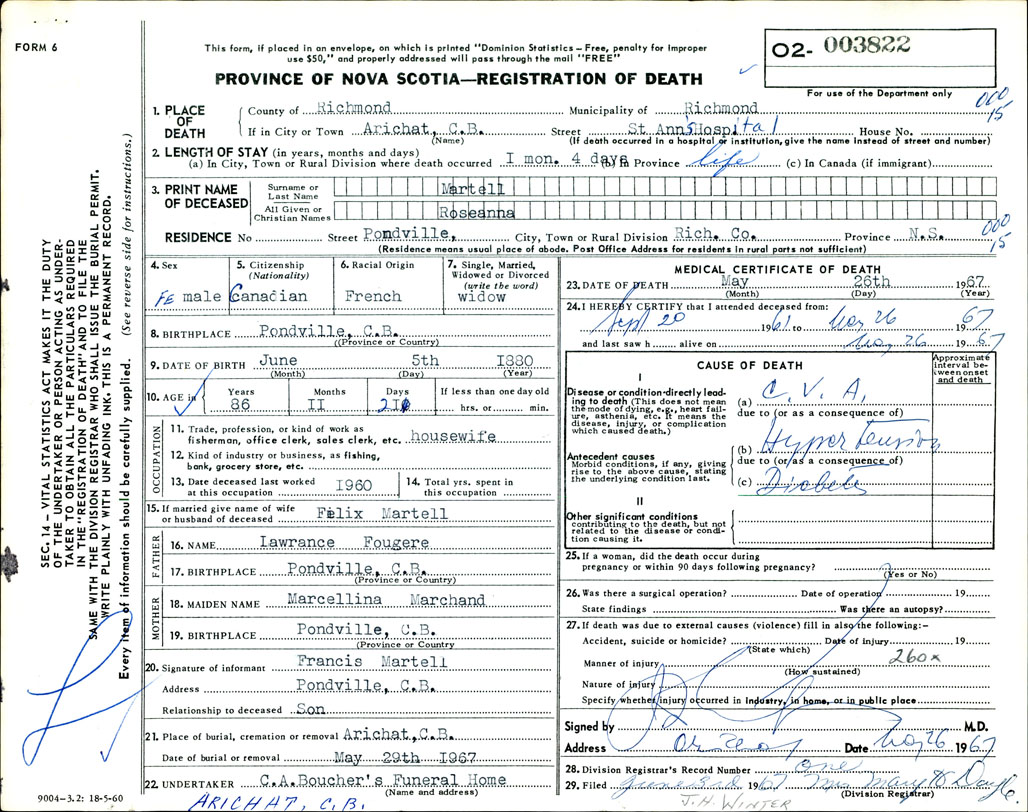 FORM 6
This form, if placed in an envelope, on which is printed "Dominion Statistics – Free, penalty for improper
use $50," and properly addressed will pass through the mail "FREE"
PROVINCE OF NOVA SCOTIA—REGISTRATION OF DEATH
02- 003822
For use of the Department only
SEC. 14 – VITAL STATISTICS ACT MAKES IT THE DUTY
OF THE UNDERTAKER OR PERSON ACTING AS UNDER-
TAKER TO OBTAIN ALL THE PARTICULARS REQUIRED
IN THE "REGISTRATION OF DEATH" AND TO FILE THE
SAME WITH THE DIVISION REGISTRAR WHO SHALL ISSUE THE BURIAL PERMIT.
WRITE PLAINLY WITH UNFADING INK. THIS IS A PERMANENT RECORD.
Every item of information should be carefully supplied. (See reverse side for instructions.)
1. PLACE OF DEATH County of Richmond Municipality of Richmond 000 15
If in City or Town Arichat, C.B. Street St Ann's Hospital House No.
(Name) (If death occurred in a hospital or institution, give the name instead of street and number)
2. LENGTH OF STAY (in years, months and days)
(a) In City, Town or Rural Division where death occurred I mon. 4 days (b) In Province life (c) In Canada (if immigrant)
3. PRINT NAME OF DECEASED Surname or Last Name Martell
All Given or Christian Names Roseanna
RESIDENCE No Street Pondville, City, Town or Rural Division Rich. Co. Province N.S. 000 15
(Residence means usual place of abode. Post Office Address for residents in rural parts not sufficient)
4. Sex Fe male
5. Citizenship (Nationality) Canadian
6. Racial Origin French
7. Single, Married, Widowed or Divorced (write the word) widow
8. BIRTHPLACE Pondville, C.B.
(Province or Country)
9. DATE OF BIRTH June 5th 1880
(Month) (Day) (Year)
10. AGE in Years 86 Months II Days 21 If less than one day old hrs. or min.
OCCUPATION
11. Trade, profession, or kind of work as
fisherman, office clerk, sales clerk, etc. housewife
12. Kind of industry or business, as fishing,
bank, grocery store, etc.
13. Date deceased last worked at this occupation I960
14. Total yrs. spent in this occupation
15. If married give name of wife or husband of deceased Felix Martell
FATHER
16. NAME Lawrance Fougere
17. BIRTHPLACE Pondville, C.B.
(Province or Country)
MOTHER
18. MAIDEN NAME Marcellina Marchand
19. BIRTHPLACE Pondville, C.B.
(Province or Country
20. Signature of informant Francis Martell
Address Pondville, C.B.
Relationship to deceased Son
21. Place of burial, cremation or removal Arichat, C.B.
Date of burial or removal May 29th I967
22. UNDERTAKER C.A.Boucher's Funeral Home
(Name and address)
ARICHAT, C.B.
9004-3.2: 18-5-60
MEDICAL CERTIFICATE OF DEATH
23. DATE OF DEATH May 26th 1967
(Month) (Day) (Year)
24. I HEREBY CERTIFY that I attended deceased from:
Sept 20 1961 to May 26 1967
and last saw h alive on May 26 1967
CAUSE OF DEATH
Approximate interval between onset and death
I
Disease or condition directly leading to death (This does not mean the mode of dying, e.g., heart failure, asthenia, etc. It means the disease, injury, or complication which caused death.)
(a) C.V.A.
due to (or as a consequence of)
Antecedent causes
Morbid conditions, if any, giving rise to the above cause, stating the underlying condition last.
(b) Hypertension
due to (or as a consequence of)
(c) Diabetes
II
Other significant conditions
contributing to the death, but not related to the disease or condition causing it.
25. If a woman, did the death occur during
pregnancy or within 90 days following pregnancy?
(Yes or No)
26. Was there a surgical operation? Date of operation 19
State findings Was there an autopsy?
27. If death was due to external causes (violence) fill in also the following:–
Accident, suicide or homicide? Date of injury 19
(State which)
260x
Manner of injury
(How sustained)
Nature of injury
Specify whether injury occurred in industry, in home, or in public place
Signed by M.D.
Address Date May 26 1967
28. Division Registrar's Record Number one
29. Filed June 3rd 1967 Mrs Mary Doyle
(Division Registrar)
J.H. WINTER